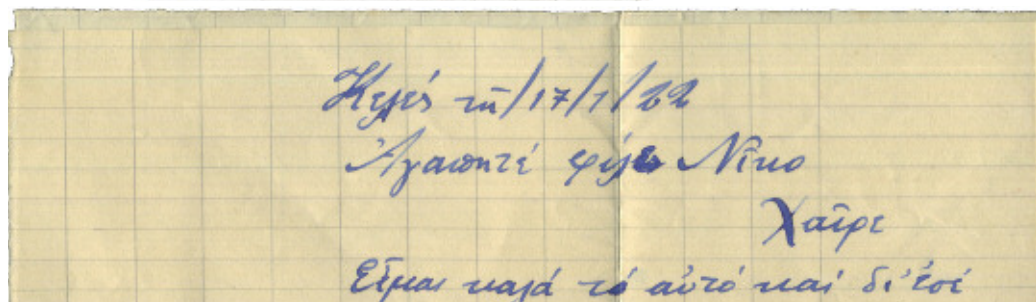 Κελές τῇ/17/1/22
Ἀγαπητέ φίλε Νῖκο
Χαῖρε
Εἶμαι καλά τό αὐτό καί δι'ἐσέ